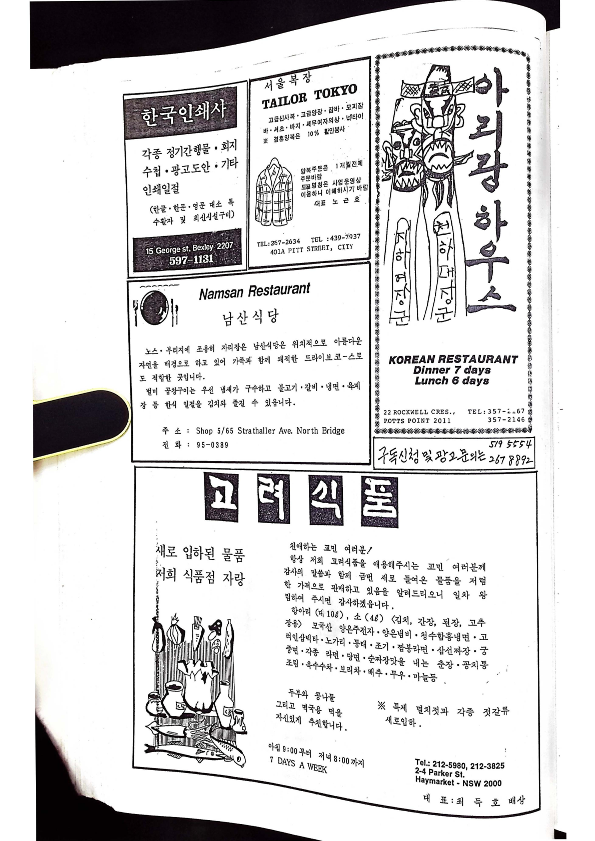 한국인쇄사
각종 정기간행물·회지
수첩·광고도안·기타
인쇄일절
(한글·한문·영문 대소 독
수활자 및 최신시설구비)
15 George st, Bexley 2207
597-1131
서울복장
TAILOR TOKYO
고급신사복·고급양장·잠바·오피잠
바·셔츠·바지·세무여자의상·넥타이
※ 결혼양복은 10% 할인봉사
대표 노근호
TEL:267-2634 TEL:439-7937
401A PITT STREET, CITY
아리랑 하우스
천하대장군
지하여장군
KOREAN RESTAURANT
Dinner 7 days
Lunch 6 days
22 ROCKWELL CRES., TEL:357-
POTTS POINT 2011 357-2146
Namsan Restaurant
남산식당
노스·부리지에 조용히 자리잡은 남산식당은 위치적으로 아름다운
자연을 배경으로 하고 있어 가족과 함께 쾌적한 드라이브 코-스로
도 적합한 곳입니다.
냄새가 구수하고 불고기·갈비·냉면·육계
장 등 한식 일절을 김치와 즐길 수 있읍니다.
주 소 : Shop 5/65 Strathaller Ave. North Bridge
전 화 : 95-0389
구독신청 및 광고문의는 519 5554
267 8892
고려식품
새로 입하된 물품
저희 식품점 자랑
친애하는 교민 여러분!
항상 저희 고려식품을 애용해주시는 교민 여러분께
감사의 말씀과 함께 금번 새로 들여온 물품을 저렴
한 가격으로 판매하고 있음을 알려드리오니 일차 왕
림하여 주시면 감사하겠읍니다.
항아리 (대 10ℓ), 소 (4ℓ) (김치, 간장, 된장, 고추
장용) 모국산 양은주전자·양은냄비·청수함흥냉면·고
노가리·동태·조기·짬뽕라면·삼선짜장·궁
중면·각종 라면·당면·순짜장맛을 내는 춘장·꽁치통
조림·옥수수차·보리차·배추·무우·마늘등
두부와 콩나물
그리고 떡국용 떡을
자신있게 추천합니다.
※ 특제 멸치젓과 각종 젓갈류
새로입하.
아침 9:00부터 저녁 8:00까지
7 DAYS A WEEK
Tel.: 212-5980, 212-3825
2-4 Parker St.
Haymarket - NSW 2000
대 표 : 최 득 호 배상